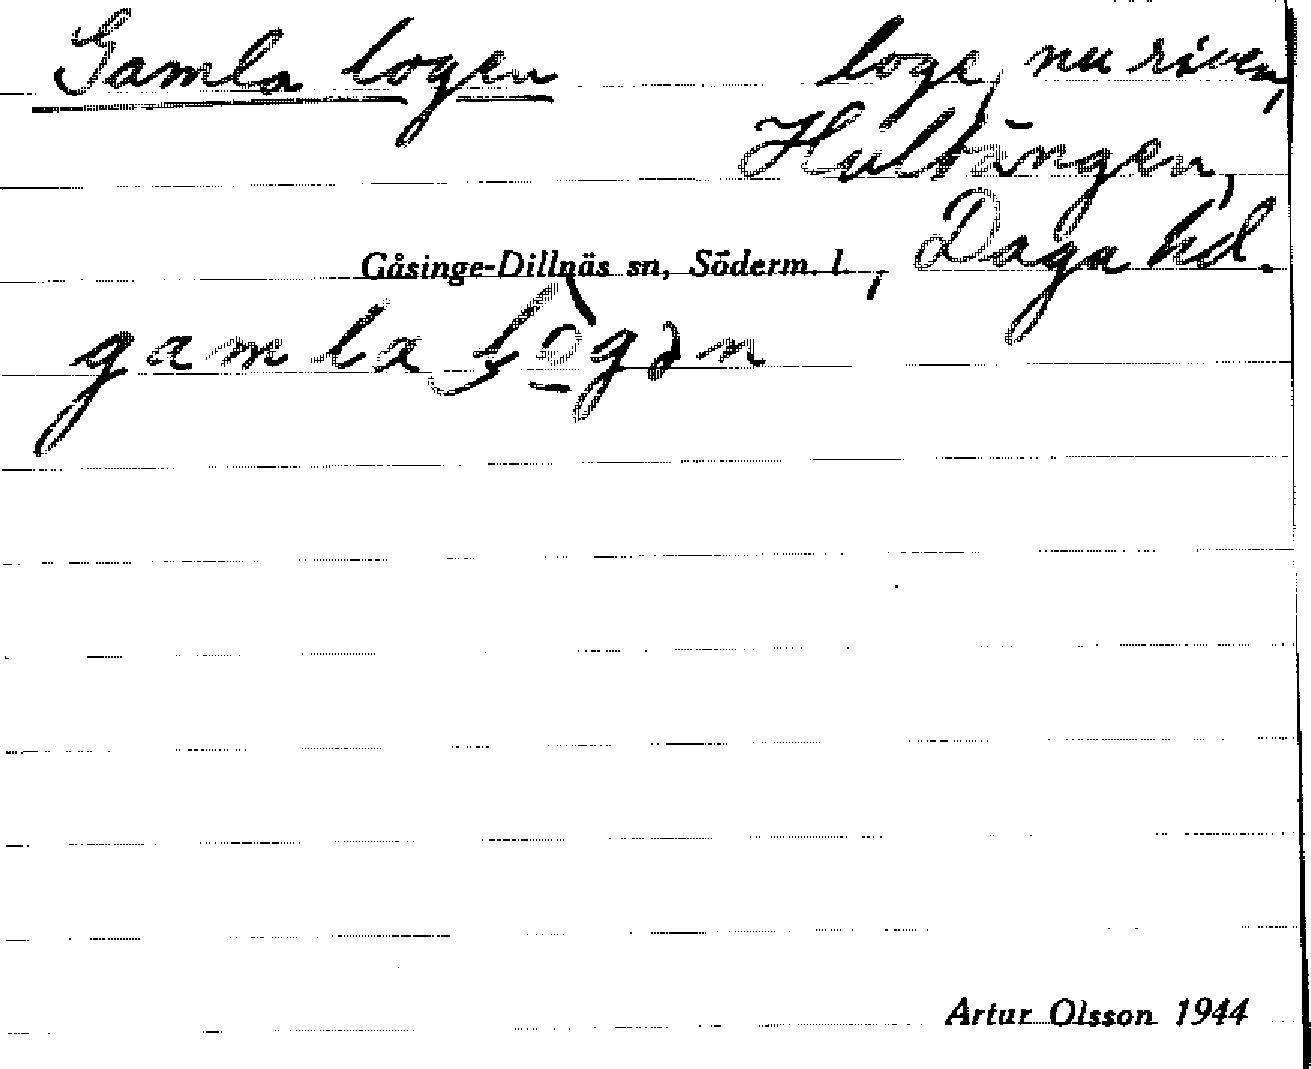 Gamla logen loge, nu riven,
Hultängen,
Gåsinge-Dillnäs sn, Söderm. l., Daga hd.
gamla
Artur Olsson 1944